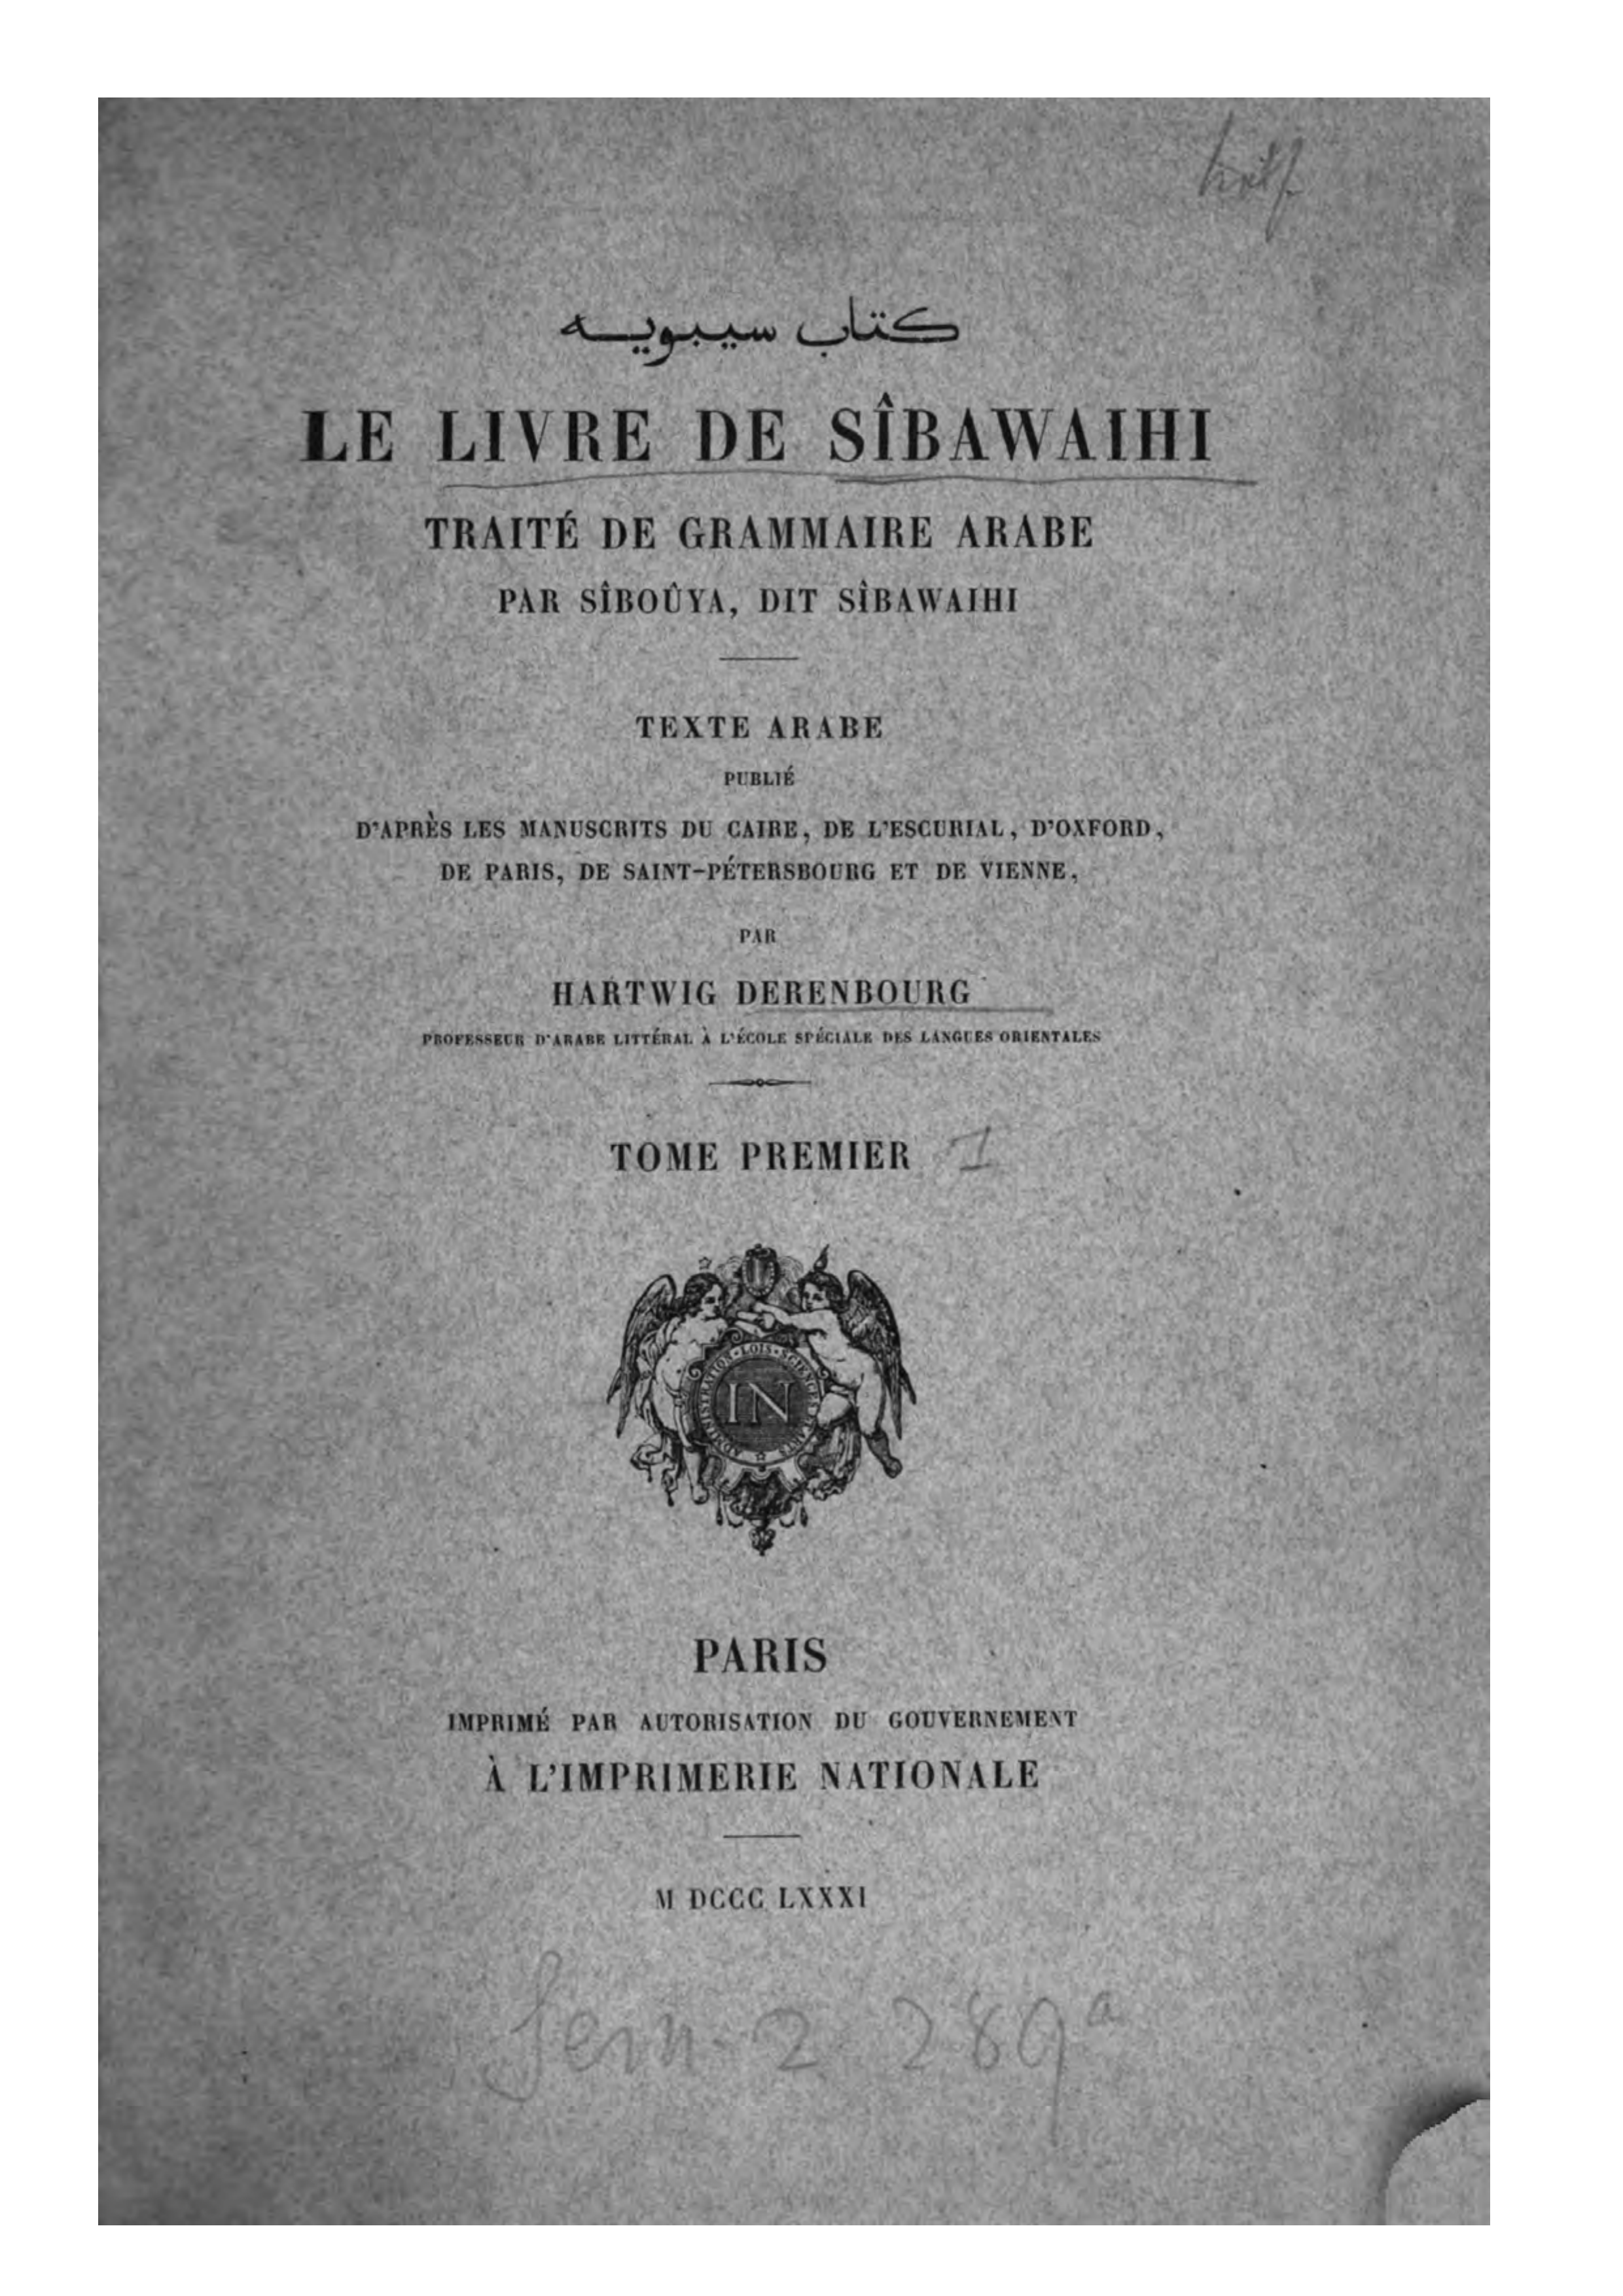 كتاب سيبويه
LE LIVRE DE SÎBAWAIHI
TRAITÉ DE GRAMMAIRE ARABE
PAR SÎBOÛYA, DIT SÎBAWAIHI
TEXTE ARABE
PUBLIÉ
D'APRÈS LES MANUSCRITS DU CAIRE, DE L'ESCURIAL, D'OXFORD,
DE PARIS, DE SAINT-PÉTERSBOURG ET DE VIENNE,
PAR
HARTWIG DERENBOURG
PROFESSEUR D'ARABE LITTÉRAL À L'ÉCOLE SPÉCIALE DES LANGUES ORIENTALES
TOME PREMIER I
ADMINISTRATION · LOIS · SCIENCES
IN
PARIS
IMPRIMÉ PAR AUTORISATION DU GOUVERNEMENT
À L'IMPRIMERIE NATIONALE
M DCCC LXXXI
2 289a